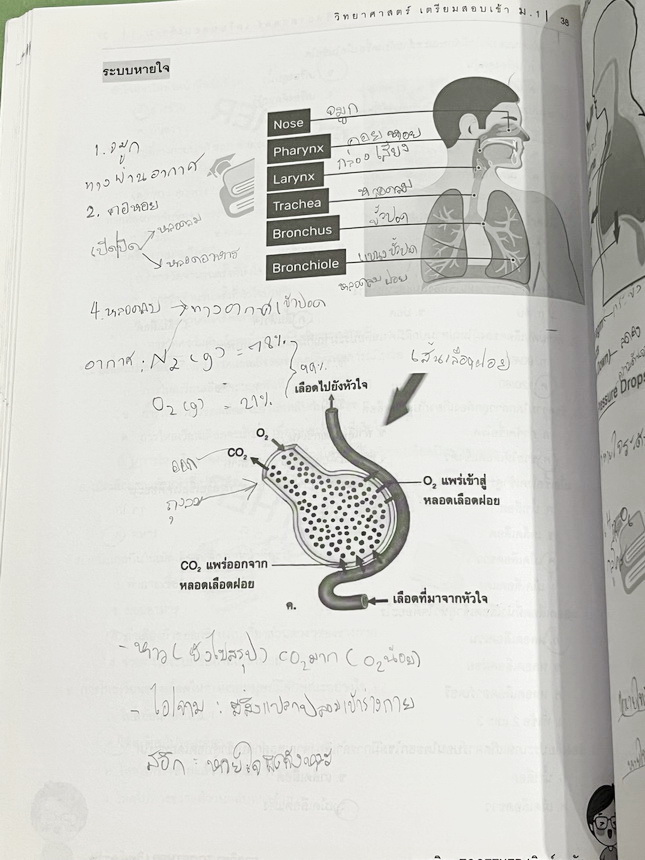 วิทยาศาสตร์ เตรียมสอบเข้า ม.1 | 38
ระบบหายใจ
1. จมูก
ทางผ่านอากาศ
2. คอหอย
เปิดปิด หลอดลม
หลอดอาหาร
Nose จมูก
Pharynx คอหอย
Larynx กล่องเสียง
Trachea หลอดลม
Bronchus ขั้วปอด
Bronchiole แขนงขั้วปอด
หลอดลมฝอย
4. หลอดลม → ทางอากาศเข้าปอด
อากาศ : N₂ (g) = 78%
O₂ (g) = 21%
99%
เส้นเลือดฝอย
เลือดไปยังหัวใจ
O₂
CO₂
ออก
ถุงลม
O₂ แพร่เข้าสู่
หลอดเลือดฝอย
CO₂ แพร่ออกจาก
หลอดเลือดฝอย
ค.
เลือดที่มาจากหัวใจ
- หาว ( ) CO₂ มาก (O₂ น้อย)
- ไอ/จาม : มีสิ่งแปลกปลอมเข้าร่างกาย
สะอึก : หายใจ